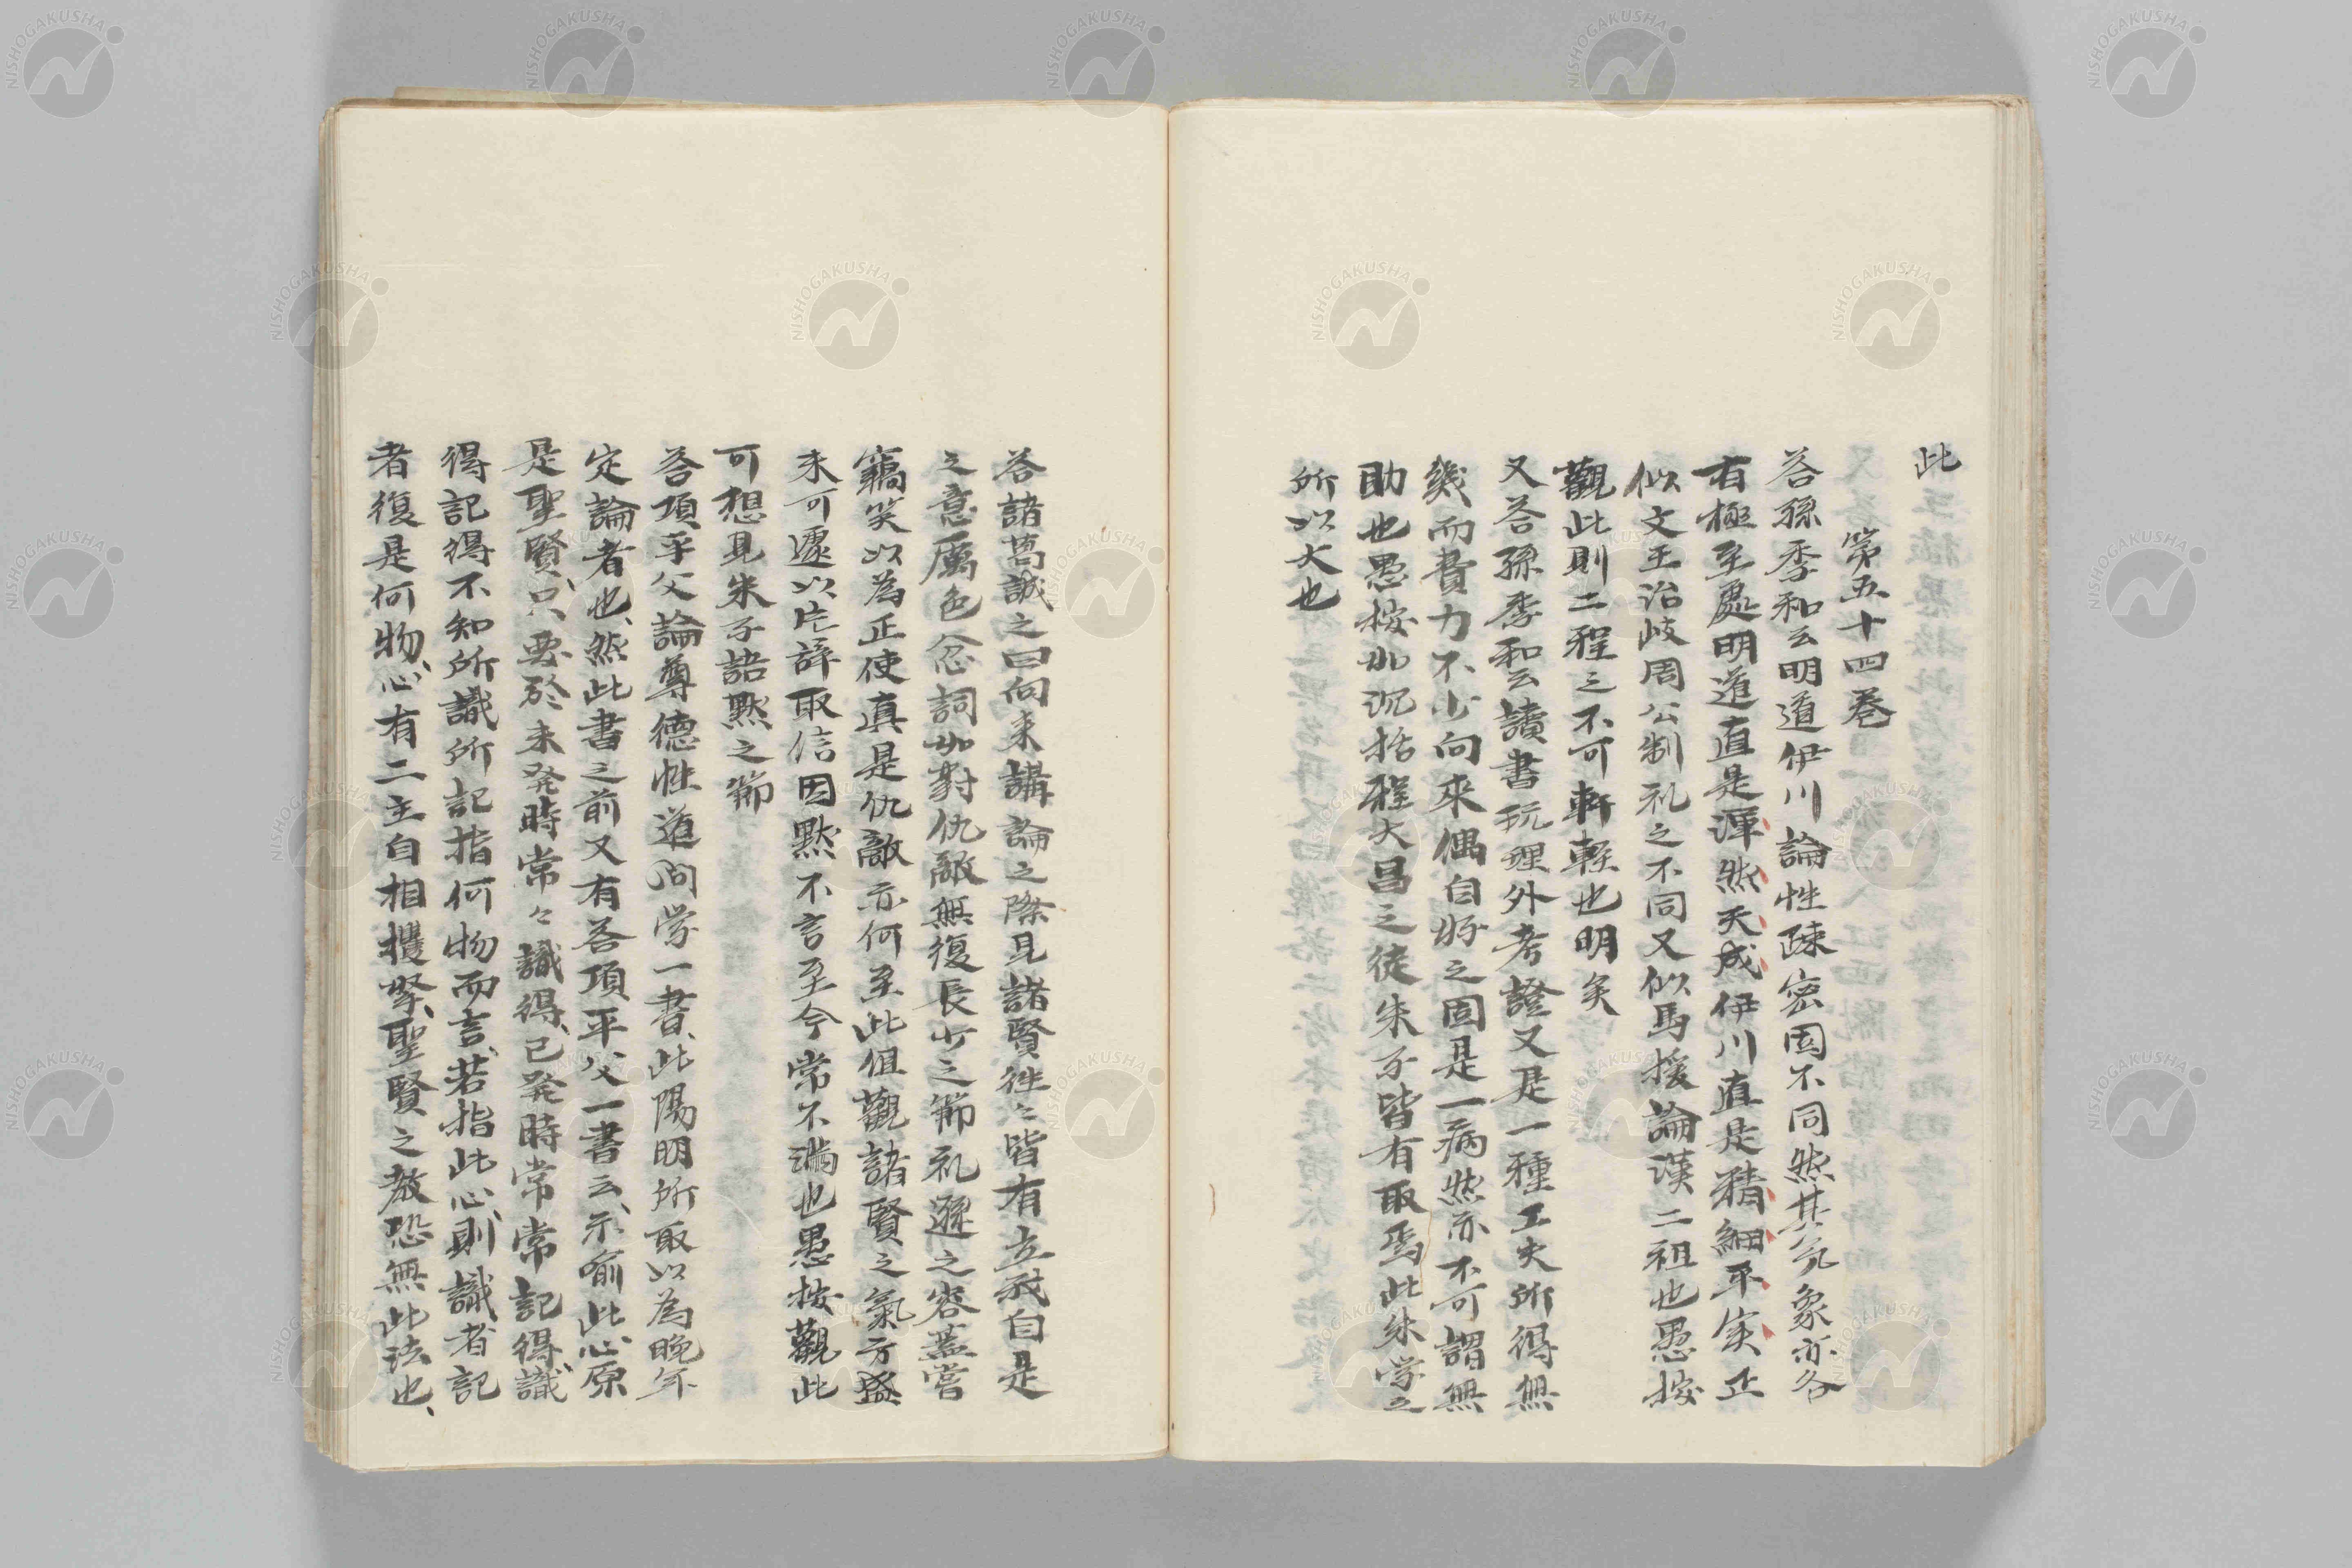 此
第五十四巻
荅孫季和云明道伊川論性疎密固不同然其気象亦各
有極至處明道直是渾然天成伊川直是精細平実正
似文王治岐周公制礼之不同又似馬援論漢二祖也愚按
觀此則二程之不可軒輊也明矣
又荅孫季和云讀書玩理外考證又是一種工夫所得無
幾而費力不少向來偶自好之固是一病然亦不可謂無
助也愚按如沉括程大昌之徒朱子皆有取焉此朱学之
所以大也
荅諸葛誠之曰向来講論之際見諸賢往〻皆有立我自是
之意厲色忿詞如對仇敵無復長少之節礼遜之容蓋嘗
竊笑以為正使真是仇敵亦何至此但觀諸賢之氣方盛
未可遽以片辞取信因黙不言至今常不満也愚按觀此
可想見朱子語黙之節
荅項平父論尊德性道問学一書、此陽明所取以為晩年
定論者也、然此書之前又有荅項平父一書云、示喻此心原
是聖賢、只要於未発時常々識得、已発時常常記得、識
得記得不知所識所記指何物而言、若指此心、則識者記
者復是何物、心有二主自相攫拏、聖賢之教恐無此法也、
NISHOGAKUSHA